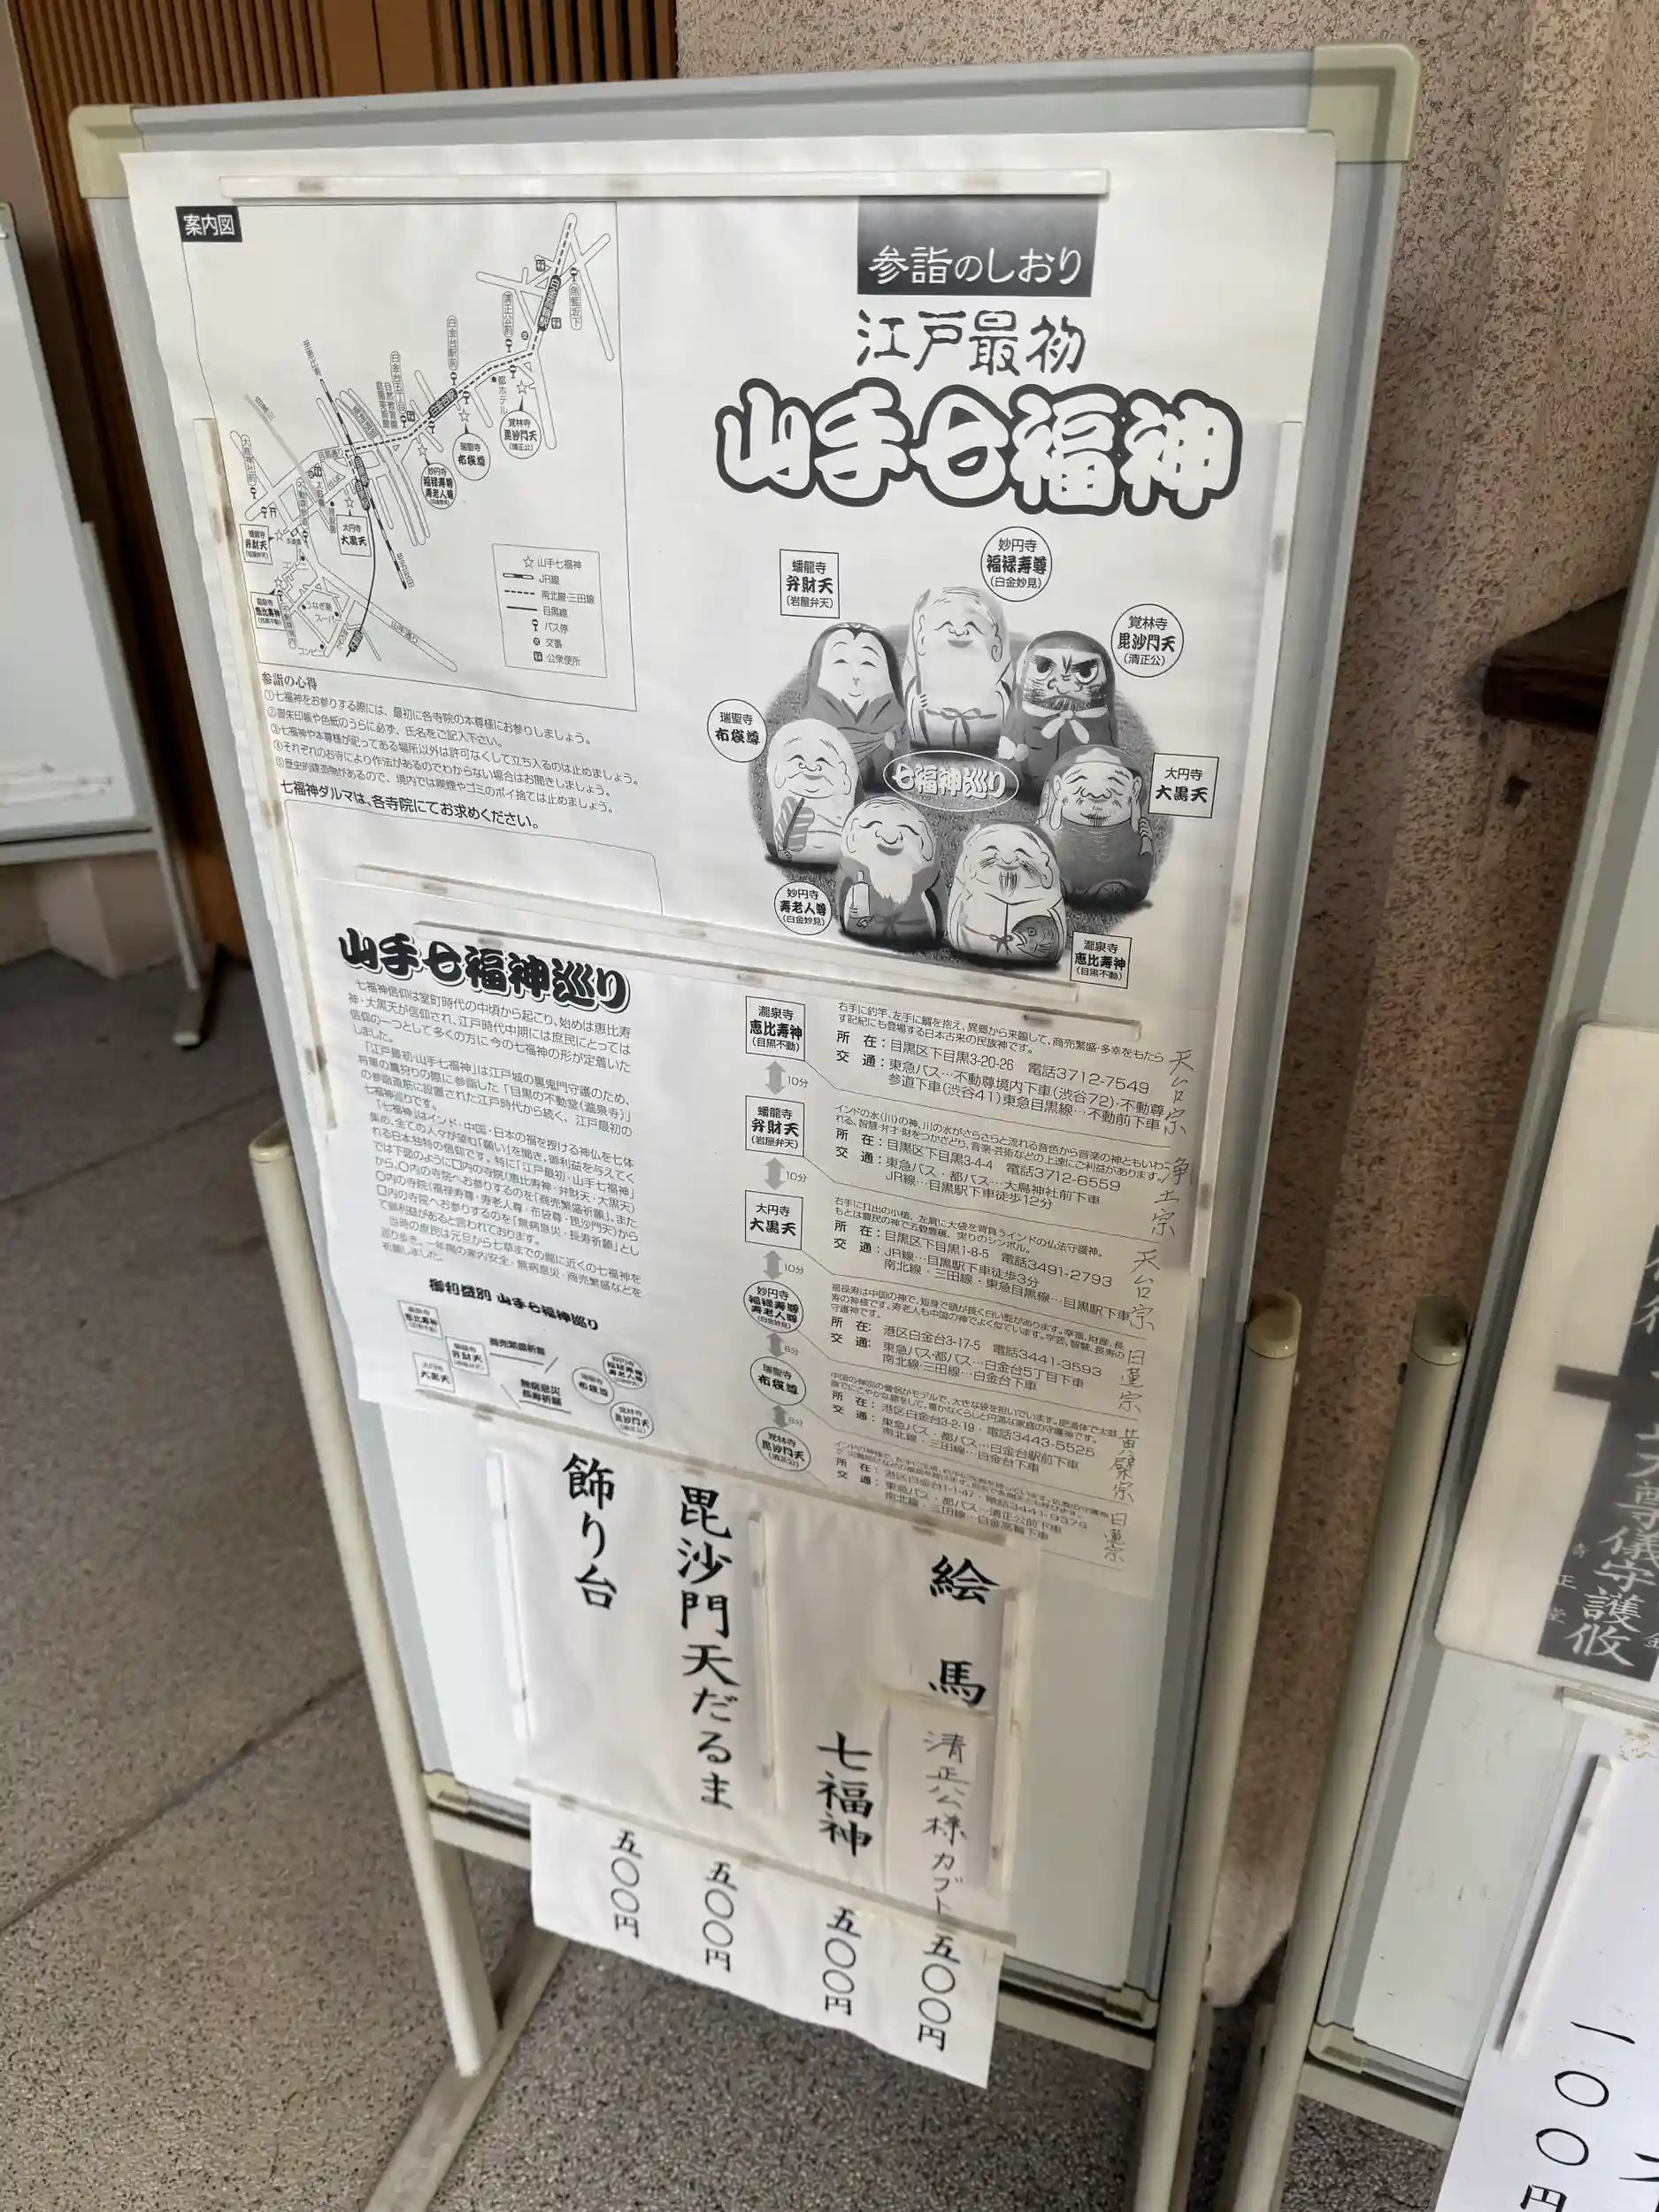 案内図
参詣のしおり
江戸最初
山手七福神
蟠龍寺
弁財天
(岩屋弁天)
妙円寺
福禄寿尊
(白金妙見)
覚林寺
毘沙門天
(清正公)
瑞聖寺
布袋尊
七福神巡り
大円寺
大黒天
妙円寺
寿老人尊
(白金妙見)
瀧泉寺
恵比寿神
(目黒不動)
白金高輪駅
魚籃坂下
清正公前
白金台駅前
都ホテル
白金台駅
覚林寺
毘沙門天
(清正公)
瑞聖寺
布袋尊
妙円寺
福禄寿尊
寿老人尊
(白金妙見)
大円寺
大黒天
蟠龍寺
弁財天
(岩屋弁天)
瀧泉寺
恵比寿神
(目黒不動)
うなぎ屋
スーパー
コンビニ
山手通り
☆ 山手七福神
JR線
南北線・三田線
目黒線
バス停
交番
公衆便所
参詣の心得
①七福神をお参りする際には、最初に各寺院の本尊様にお参りしましょう。
②御朱印帳や色紙のうらに必ず、氏名をご記入下さい。
③七福神や本尊様が祀ってある場所以外は許可なくして立ち入るのは止めましょう。
④それぞれのお寺により作法があるのでわからない場合はお聞きしましょう。
⑤歴史的建造物があるので、境内では喫煙やゴミのポイ捨ては止めましょう。
七福神ダルマは、各寺院にてお求めください。
山手七福神巡り
七福神信仰は室町時代の中頃から起こり、始めは恵比寿
神・大黒天が信仰され、江戸時代中期には庶民にとっては
信仰の一つとして多くの方に今の七福神の形が定着いた
しました。
「江戸最初・山手七福神」は江戸城の裏鬼門守護のため、
将軍の鷹狩りの際に参詣した「目黒の不動堂(瀧泉寺)」
の参詣道筋に設置された江戸時代から続く、江戸最初の
七福神巡りです。
「七福神」はインド・中国・日本の福を授ける神仏を七体
集め、全ての人々が望む「願い」を聞き、御利益を与えてく
れる日本独特の信仰です。特に「江戸最初・山手七福神」
では下図のように口内の寺院(恵比寿神・弁財天・大黒天)
から、〇内の寺院へお参りするのを「商売繁盛祈願」、また
〇内の寺院(福禄寿尊・寿老人尊・布袋尊・毘沙門天)から
口内の寺院へお参りするのを「無病息災・長寿祈願」とし
て御利益があると言われております。
当時の庶民は元旦から七草までの間に近くの七福神を
巡り歩き、一年間の家内安全・無病息災・商売繁盛などを
祈願しました。
御利益別 山手七福神巡り
瀧泉寺
恵比寿神
(目黒不動)
蟠龍寺
弁財天
大円寺
大黒天
商売繁盛祈願
無病息災
長寿祈願
瑞聖寺
布袋尊
妙円寺
福禄寿尊
寿老人尊
覚林寺
毘沙門天
瀧泉寺
恵比寿神
(目黒不動)
右手に釣竿、左手に鯛を抱え、異郷から来臨して、商売繁盛・多幸をもたら
す記紀にも登場する日本古来の民族神です。
所 在:目黒区下目黒3-20-26 電話3712-7549
交 通:東急バス…不動尊境内下車(渋谷72)・不動尊
参道下車(渋谷41)東急目黒線…不動前下車
天台宗
10分
蟠龍寺
弁財天
(岩屋弁天)
インドの水(川)の神、川の水がさらさらと流れる音色から音楽の神ともいわ
れる。智慧・弁才・財をつかさどり、音楽・芸術などの上達にご利益があります。
所 在:目黒区下目黒3-4-4 電話3712-6559
交 通:東急バス・都バス…大鳥神社前下車
JR線…目黒駅下車徒歩12分
浄土宗
10分
大円寺
大黒天
右手に打出の小槌、左肩に大袋を背負うインドの仏法守護神。
もとは農民の神で五穀豊穣、実りのシンボル。
所 在:目黒区下目黒1-8-5 電話3491-2793
交 通:JR線…目黒駅下車徒歩3分
南北線・三田線・東急目黒線…目黒駅下車
天台宗
10分
妙円寺
福禄寿尊
寿老人尊
(白金妙見)
福禄寿は中国の神で、短身で頭が長く白い髭があります。幸福、財産、長
寿の神様です。寿老人も中国の神でよく似ています。学芸、智慧、長寿の
守護神です。
所 在: 港区白金台3-17-5 電話3441-3593
交 通: 東急バス・都バス…白金台5丁目下車
南北線・三田線…白金台下車
日蓮宗
8分
瑞聖寺
布袋尊
中国の禅宗の僧侶がモデルで、大きな袋を担いでいます。肥満体で太鼓
腹でにこやかな顔をして、豊かなくらしと円満な家庭の守護神です。
所 在:港区白金台3-2-19・電話3443-5525
交 通:東急バス・都バス…白金台駅前下車
南北線・三田線…白金台下車
黄檗宗
8分
覚林寺
毘沙門天
(清正公)
所 在:港区白金台1-1-47・電話3441-9379
交 通:東急バス・都バス…清正公前下車
南北線・三田線…白金高輪下車
日蓮宗
絵馬 清正公様カブト 五〇〇円
七福神 五〇〇円
毘沙門天だるま 五〇〇円
飾り台 五〇〇円
大尊儀守護攸
一〇〇円